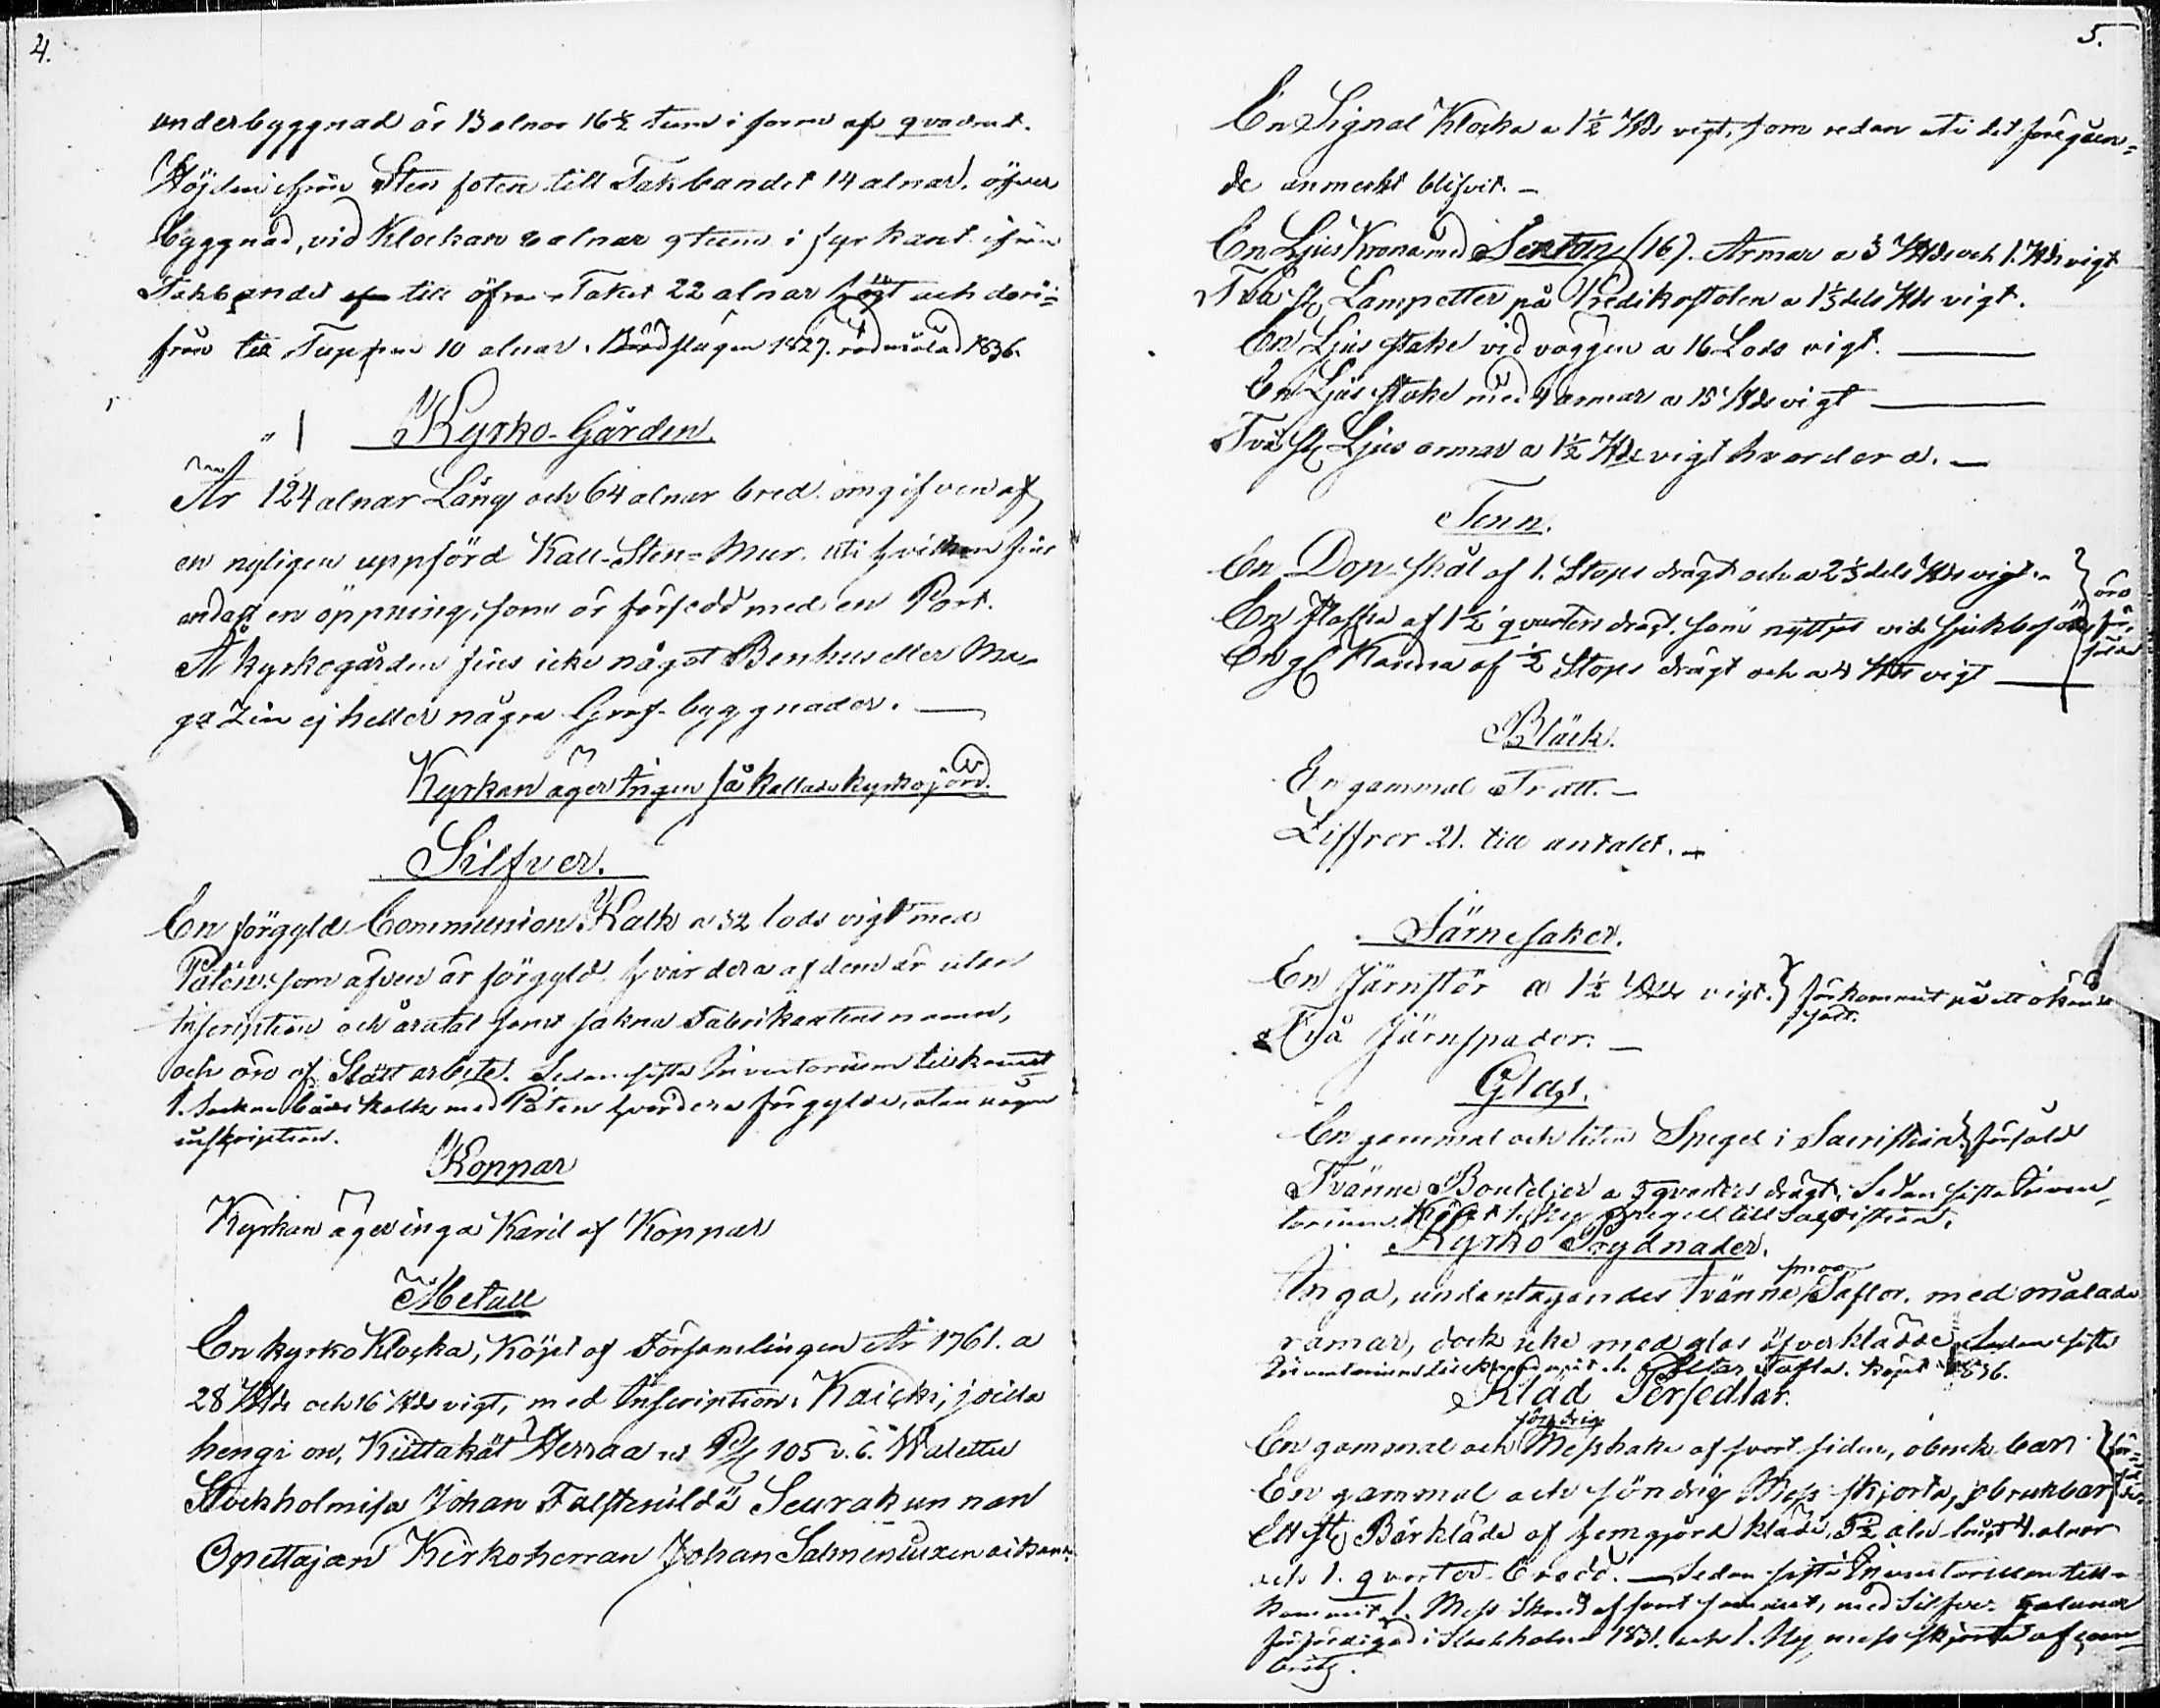 4.
underbyggnad är 13 alnar 16½ tum i form af qvadrat.
Höjden ifrån Sten foten till Takbandet 14 alnar. öfver
byggnad, vid Klockan 8 alnar 9 tum i fyrkant ifrån
Takbandet till öfre Taket 22 alnar högt och deri-
från till Tuppen 10 alnar. Brädslagen 1827. rödmålad 1836.
Kyrko-Gården.
Är 124 alnar Lång och 64 alnar bred. omgifven af
en nyligen uppförd Kall-Sten-Mur. uti hvilken fins
endast en öppning, som är försedd med en Port.
Å kyrkogården fins icke något Benhus eller Ma-
gazin ej heller några Graf-byggnader.
Kyrkan äger ingen så kallad kyrkojord.
Silfver.
En förgyld Communion Kalk a 32 lods vigt med
Patén som äfven är förgyld hvardera af dem är utan
Inscription och åratal samt sakna Fabrikantens namn,
och äro af Slätt arbete. Sedan sista Inventarium tillkommit
1. Sockne båds kalk med Paten hvardera förgylda, utan någon
inscription.
Koppar
Kyrkan äger inga Käril af Koppar
Metall
En kyrko Klocka, Köpt af Församlingen År 1761. a
28 L℔ och 16 ℔ vigt, med Inscription: Kaicki, joilla
hengi on, Kiittäkät Herraa Ps 105 v. 6. Walettu
Stockholmisa Johan Fahlstenildä Seurakunnan
Opettajan Kirkoherran Johan Salmeniuxen aikana.
5.
En Signal Klocka a 1½ L℔ vigt, som redan uti det föregåen-
de anmerkt blifvit.
En Ljus Krona med Sexton (16). Armar a 3 L℔ och 1. ℔ vigt
Två st Lampetter på Predikostolen a 1⅓dels ℔ vigt.
En Ljus stake vid väggen a 16 Lods vigt.
En Ljus stake med 4 armar a 15 ℔ vigt
Två st Ljus armar a 1½ ℔ vigt hvardera.
Tenn.
En Dop-skål af 1. Stops drägt och a 2⅓dels ℔ vigt.
En Flaska af 1½ qvarters drägt. som nyttjas vid sjukbesök
En gl Kanna af ½ Stops drägt och a 4 ℔ vigt
äro
för-
sålda
Bläck.
En gammal Tratt.
Ziffror 21. till antalet.
Järnesaker.
En Järnstör a 1½ L℔ vigt. } förkommit på ett okändt
sätt.
Två Järnspador.
Glas.
En gammal och liten Spegel i Sacristian } försåld
Tvänne Bouteljer a 3 qvarters drägt, Sedan sista Inven-
tarium Köpt 1. Ny spegel till Sacristian.
Kyrko Prydnader.
Inga, undantagandes tvänne små Taflor, med målade
ramar, dock icke med glas öfverklädde. Sedan sista
Inventarium tillkommit 1. Altar Tafla. köpt 1836.
Kläd Persedlar.
En gammal och söndrig Messhake af svart siden, obrukbar
En gammal och söndrig Mess skjorta, obrukbar
Ett st Bårkläde af hemgjord kläde, 5½ aln långt 4. alnar
och 1. qvarter bredd. Sedan sista Inventarium till-
kommit 1. Mess skrud af svart sammet, med Silfver galuner
förfärdigad i Stockholm 1831. och 1. Ny mess skjorta af cam-
britz.